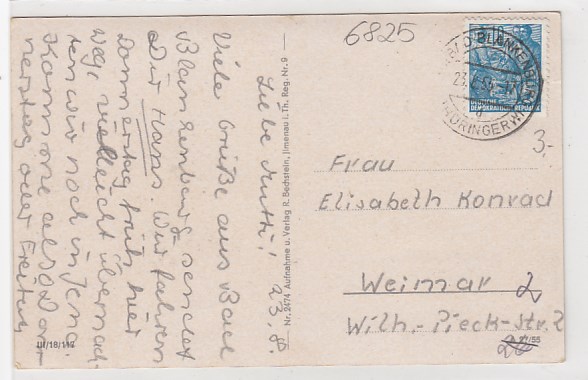 6825
BAD BLANKENBURG
THÜRINGERWALD
DEUTSCHE
DEMOKRATISCHE REPUBLIK
3,-
Liebe Mutti! 23.8.
Viele Grüße aus Bad
Blankenburg sendet
Dir Hans. Wir fahren
Donnerstag früh hier
weg, vielleicht übernach-
ten wir noch in Jena.
Komme also Don-
nerstag oder Freitag
III/18/117
Nr. 2474 Aufnahme u. Verlag R. Bechstein, Ilmenau i. Th. Reg. Nr. 9
Frau
Elisabeth Konrad
Weimar
Wilh.-Pieck-Str. 2